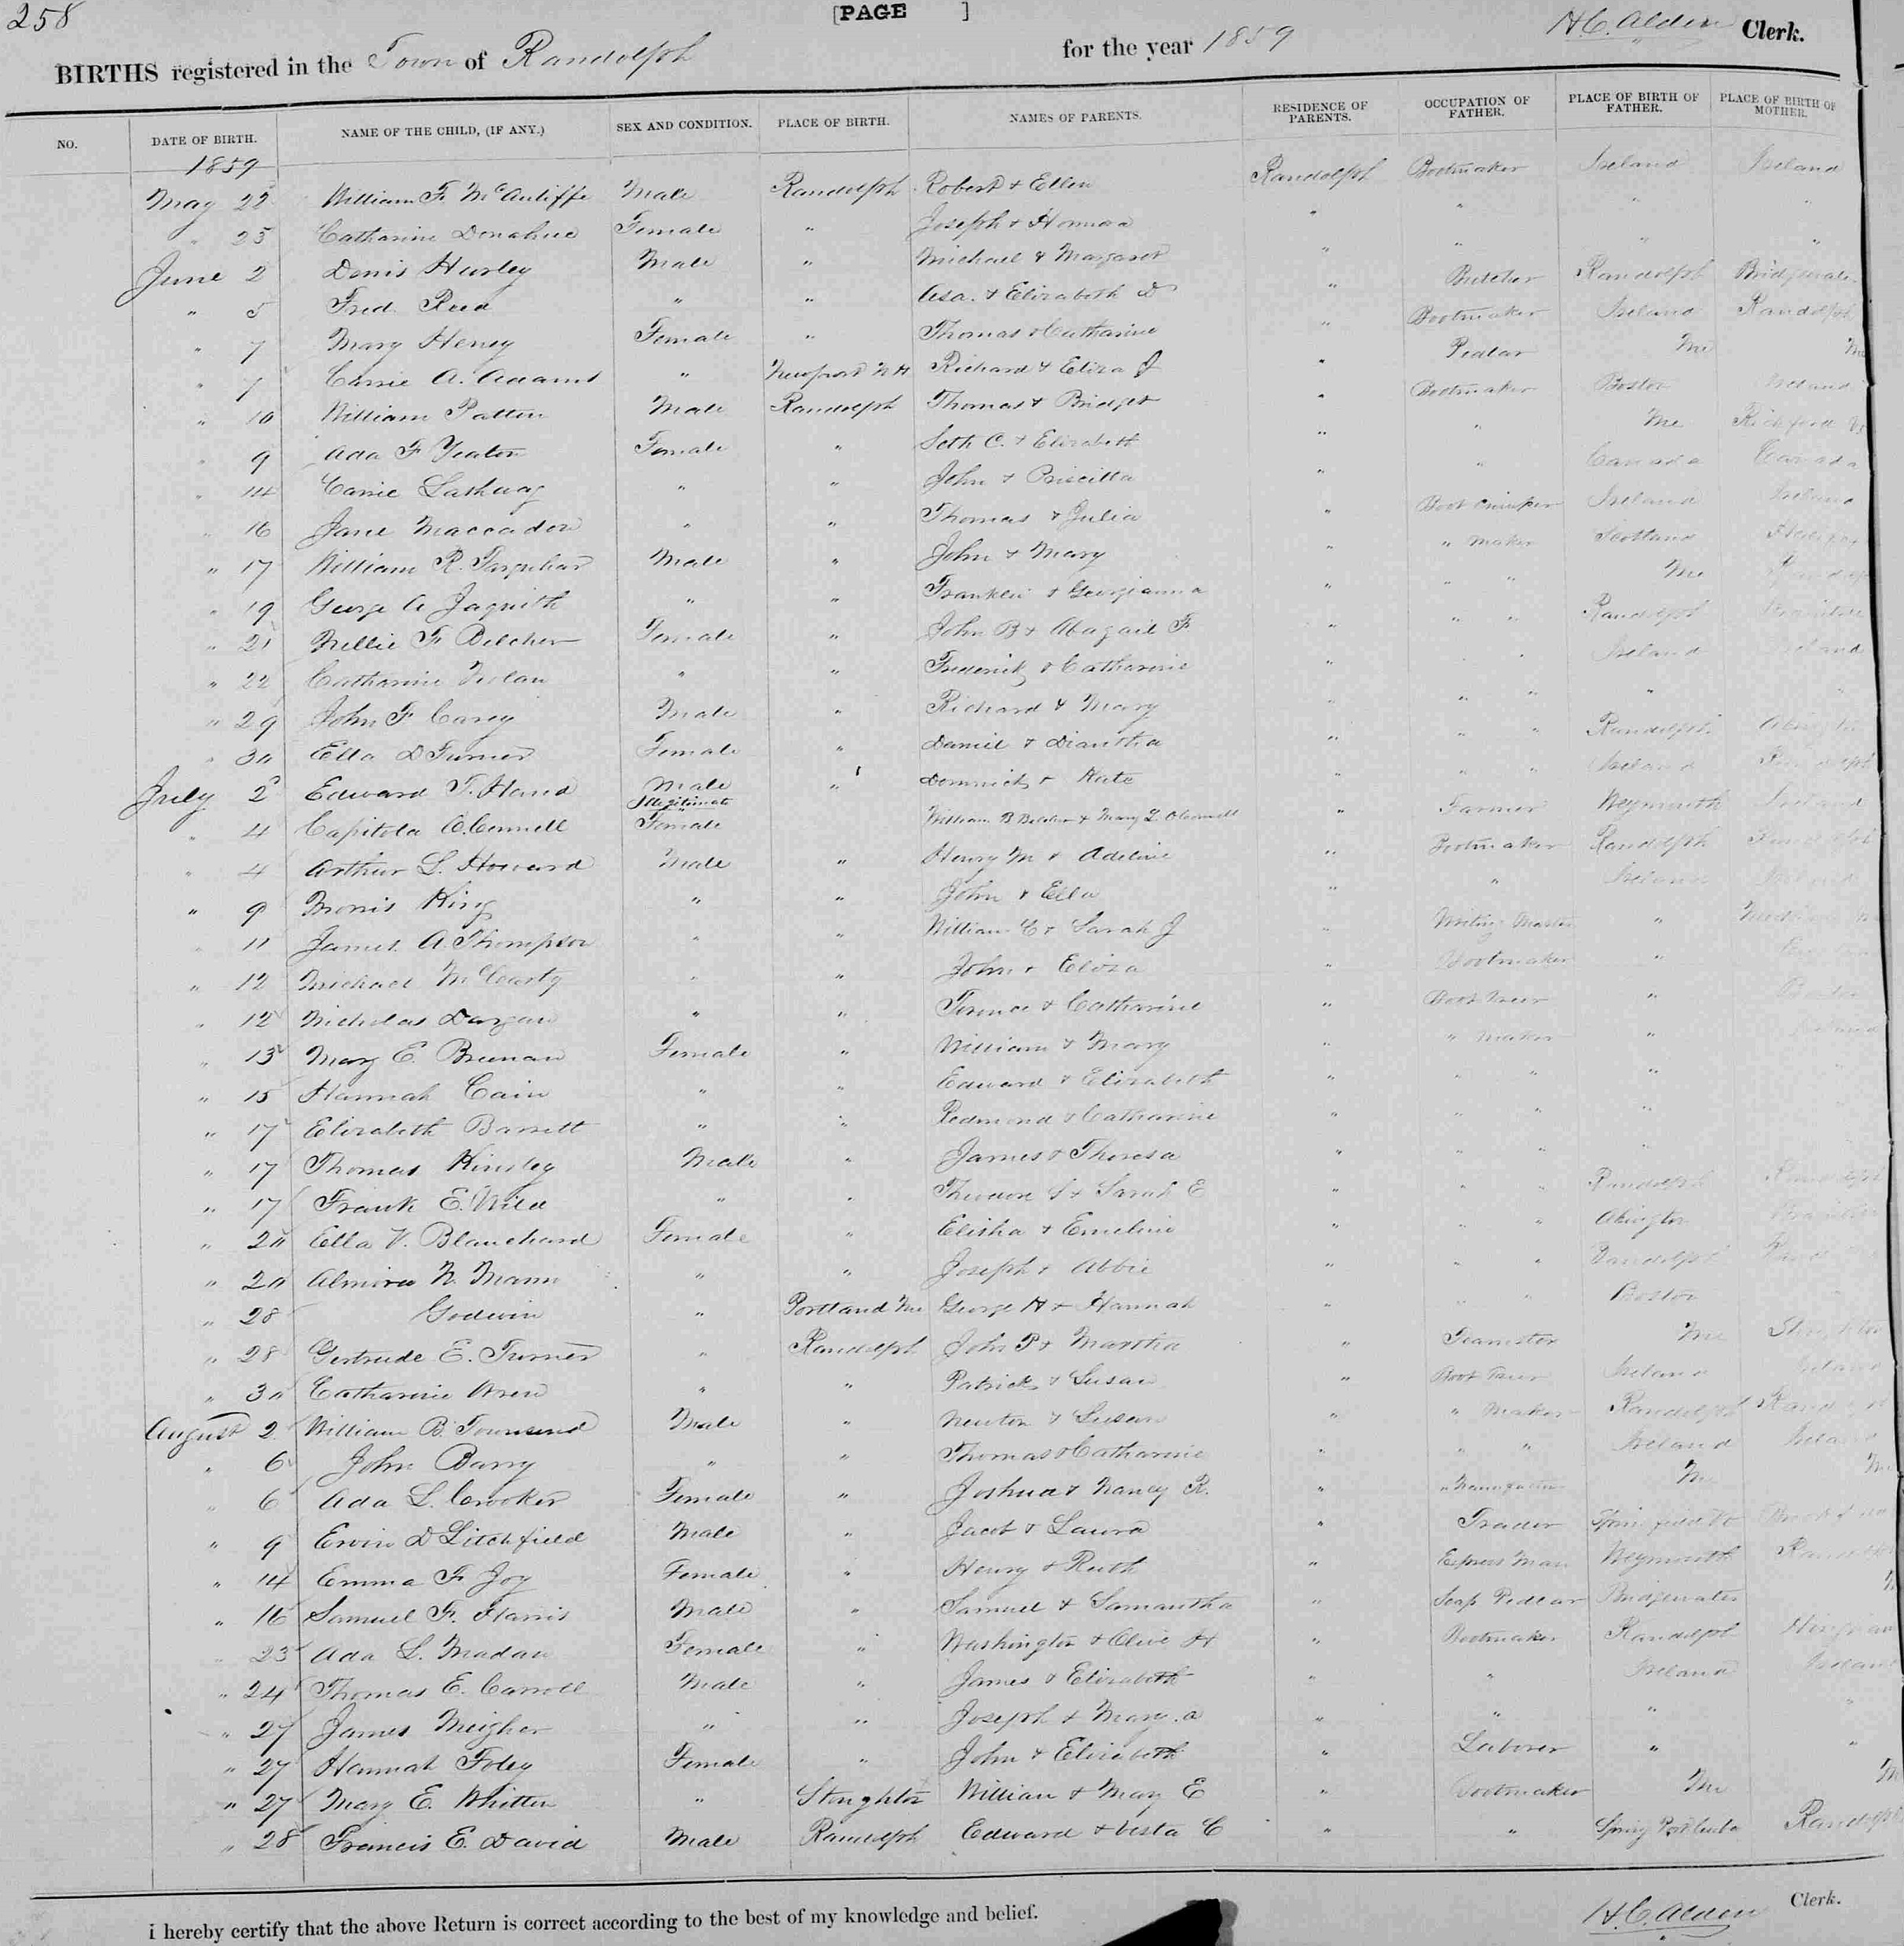 258 [PAGE ]
BIRTHS registered in the Town of Randolph for the year 1859 H. C. Alden Clerk.
NO. DATE OF BIRTH. NAME OF THE CHILD, (IF ANY.) SEX AND CONDITION. PLACE OF BIRTH. NAMES OF PARENTS. RESIDENCE OF PARENTS. OCCUPATION OF FATHER. PLACE OF BIRTH OF FATHER. PLACE OF BIRTH OF MOTHER.
1859
May 22 William F. McAuliffe Male Randolph Robert & Ellen Randolph Bootmaker Ireland Ireland
" 25 Catharine Donahue Female " Joseph & " " " "
June 2 Denis Hurley Male " Michael & Margaret " " " "
" 5 Fred. Reed " " Asa. & Elizabeth D " Butcher Randolph Bridgewater
" 7 Mary Heney Female " Thomas & Catharine " Bootmaker Ireland Randolph
" 7 Carrie A. Adams " Newport N H Richard & Eliza J " Pedlar Me Me
" 10 William Patten Male Randolph Thomas & Bridget " Bootmaker Boston Ireland
" 9 Ada F Yeaton Female " Seth C. & Elizabeth " " Me Richford Vt
" 14 Carrie Lashway " " John & Priscilla " " Canada Canada
" 16 Jane " " Thomas & Julia " Boot Crimper Ireland Ireland
" 17 William R. Farquhar Male " John & Mary " " Maker Scotland
" 19 George A Jaquith " " Franklin & Georgianna " " " Me
" 21 Nellie F Belcher Female " John B & Abagail F " " " Randolph Braintree
" 22 Catharine Nolan " " Frederick & Catharine " " " Ireland Ireland
" 29 John F Carey Male " Richard & Mary " " " " "
" 30 Ella D Turner Female " Daniel & Diantha " " " Randolph Abington
July 2 Edward T. Hand Male " Dominick & Kate " " " Ireland Randolph
" 4 Capitola O.Connell Illegitimate Female " William B Belcher & Mary L Oconnell " Farmer Weymouth Ireland
" 4 Arthur L. Howard Male " Henry M & Adeline " Bootmaker Randolph Randolph
" 9 Morris King " " John & Ella " " Ireland Ireland
" 11 James. A. Thompson " " William C & Sarah J " Writing Master "
" 12 Michael McCarty " " John & Eliza " Bootmaker "
" 12 Nicholas Dargan " " Terence & Catharine " Boot Treer " Boston
" 13 Mary E. Brennan Female " William & Mary " " Maker " Ireland
" 15 Hannah Cain " " Edward & Elizabeth " " " "
" 17 Elizabeth Barrett " " Redmond & Catharine " " " "
" 17 Thomas Kinsley Male " James & Theresa " " " "
" 17 Frank E. Wild " " Theodore & Sarah E " " " Randolph Randolph
" 20 Ella V. Blanchard Female " Elisha & Emeline " " " Abington Braintree
" 20 Almira N. Mann " " Joseph & Abbie " " " Randolph
" 28 Godwin " Portland Me George H & Hannah " " " Boston "
" 28 Gertrude E. Turner " Randolph John P & Martha " Teamster Me Stoughton
" 30 Catharine Wren " " Patrick & Susan " Boot Treer Ireland Ireland
August 2 William B. Townsend Male " Newton & Susan " " Maker Randolph Randolph
" 6 John Barry " " Thomas & Catharine " " " Ireland Ireland
" 6 Ada L. Crooker Female " Joshua & Nancy R. " " Me Me
" 9 Ervin D Litchfield Male " Jacob & Laura " Trader Springfield Vt
" 14 Emma F Joy Female " Henry & Ruth " Express Man Weymouth Randolph
" 16 Samuel F. Harris Male " Samuel & Samantha " Soap Pedlar Bridgewater
" 23 Ada L. Madan Female " Washington & Olive H " Bootmaker Randolph Hingham
" 24 Thomas E. Carroll Male " James & Elizabeth " " Ireland Ireland
" 27 James Meigher " " Joseph & Mary. a " " " "
" 27 Hannah Foley Female " John & Elizabeth " Laborer " "
" 27 Mary E. Whitten " Stoughton William & Mary E " Bootmaker Me M
" 28 Francis E. David Male Randolph Edward & Vesta C " " Randolph
I hereby certify that the above Return is correct according to the best of my knowledge and belief. H. C. Alden Clerk.